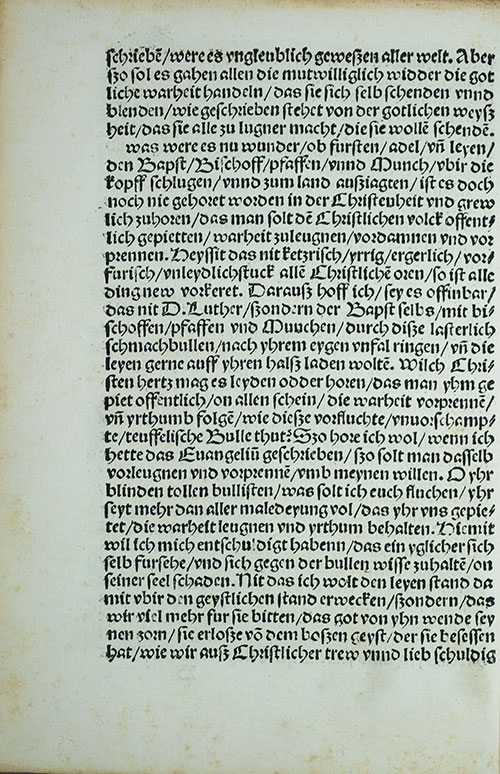 schriebē/were es vngleublich geweszen aller welt. Aber
szo sol es gahen allen die mutwilliglich widder die got
liche warheit handeln/das sie sich selb schenden vnnd
blenden/wie geschrieben stehet von der gotlichen weysz
heit/das sie alle zu lugner macht/die sie wollē schendē.
was were es nu wunder/ob fursten/adel/vñ leyen/
den Bapst/Bischoff/pfaffen/vnnd Munch/vbir die
kopff schlugen/vnnd zum land ausziagten/ist es doch
noch nie gehoret worden in der Christeuheit vnd grew
lich zuhoren/das man solt dē Christlichen volck offent-
lich gepietten/warheit zuleugnen/vordamnen vnd vor
prennen. Heyssit das nit ketzrisch/yrrig/ergerlich/vor-
furisch/vnleydlichstuck allē Christlichē oren/so ist alle
ding new vorkeret. Darausz hoff ich/sey es offinbar/
das nit D. Luther/szondern der Bapst selbs/mit bi-
schoffen/pfaffen vnd Muuchen/durch disze lasterlich
schmachbullen/nach yhrem eygen vnfal ringen/vñ die
leyen gerne auff yhren halsz laden woltē. Wilch Chri-
sten hertz mag es leyden odder horen/das man yhm ge
piet offentlich/on allen schein/die warheit vorprennē/
vñ yrthumb folgē/wie diesze vorfluchte/vnuorschamp-
te/teuffelische Bulle thut? Szo hore ich wol/wenn ich
hette das Euangeliū geschrieben/szo solt man dasselb
vorleugnen vnd vorprennē/vmb meynen willen. O yhr
blinden tollen bullisten/was solt ich euch fluchen/yhr
seyt mehr dan aller maledeyung vol/das yhr vns gepie-
tet/die warheit leugnen vnd yrthum behalten. Hiemit
wil ich mich entschuldigt habenn/das ein yglicher sich
selb fursehe/vnd sich gegen der bullen wisse zuhaltē/on
seiner seel schaden. Nit das ich wolt den leyen stand da
mit vbir den geystlichen stand erwecken/szondern/das
wir viel mehr fur sie bitten/das got von yhn wende sey
nen zorn/sie erlosze vō dem boszen geyst/der sie besessen
hat/wie wir ausz Christlicher trew vnnd lieb schuldig